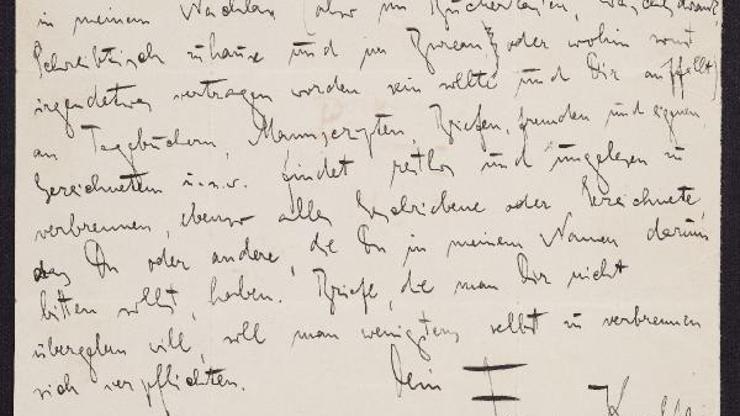 in meinem Nachlass (also im Bücherkasten, Wäscheschrank,
Schreibtisch zuhause und im Bureau, oder wohin sonst
irgendetwas vertragen worden sein sollte und Dir auffällt)
an Tagebüchern, Manuscripten, Briefen, fremden und eignen,
Gezeichnetem u.s.w. findet restlos und ungelesen zu
verbrennen, ebenso alles Geschriebene oder Gezeichnete,
das Du oder andre, die Du in meinem Namen darum
bitten sollst, haben. Briefe, die man Dir nicht
übergeben will, soll man wenigstens selbst zu verbrennen
sich verpflichten.
Dein F